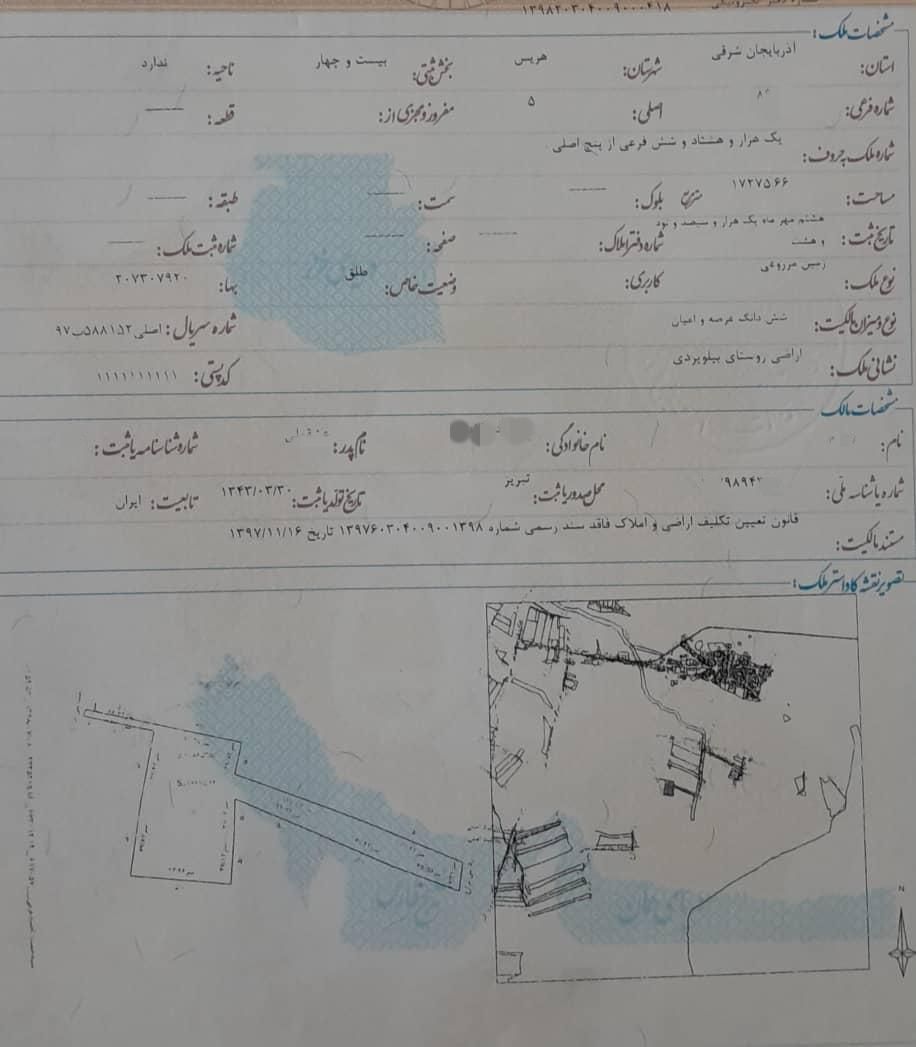 ۱۳۹۸۲۰۳۰۴۰۰۹۰۰۰۴۱۸
مشخصات ملک:
استان: آذربایجان شرقی شهرستان: هریس بخش ثبتی: بیست و چهار ناحیه: ندارد
شماره فرعی: اصلی: ۵ مفروز و مجزی از: قطعه:
شماره ملک بحروف: یک هزار و هشتاد و شش فرعی از پنج اصلی
مساحت: ۱۷۲۷۵.۶۶ مترمربع بلوک: سمت: طبقه:
تاریخ ثبت: هشتم مهر ماه یک هزار و سیصد و نود و هشت شماره دفتر املاک: صفحه: شماره ثبت ملک:
نوع ملک: زمین مزروعی کاربری: وضعیت خاص: طلق بها: ۲۰۷۳۰۷۹۲۰
نوع و میزان مالکیت: شش دانگ عرصه و اعیان شماره سریال: اصلی ۵۸۸۱۵۲ب۹۷
نشانی ملک: اراضی روستای بیلویردی کد پستی: ۱۱۱۱۱۱۱۱۱۱
مشخصات مالک
نام: نام خانوادگی: نام پدر: شماره شناسنامه یا ثبت:
شماره یا شناسه ملی: محل صدور یا ثبت: تبریز تاریخ تولد یا ثبت: ۱۳۴۳/۰۳/۳۰ تابعیت: ایران
مستند مالکیت: قانون تعیین تکلیف اراضی و املاک فاقد سند رسمی شماره ۱۳۹۷۶۰۳۰۴۰۰۹۰۰۱۳۹۸ تاریخ ۱۳۹۷/۱۱/۱۶
تصویر نقشه کاداستر ملک:
N